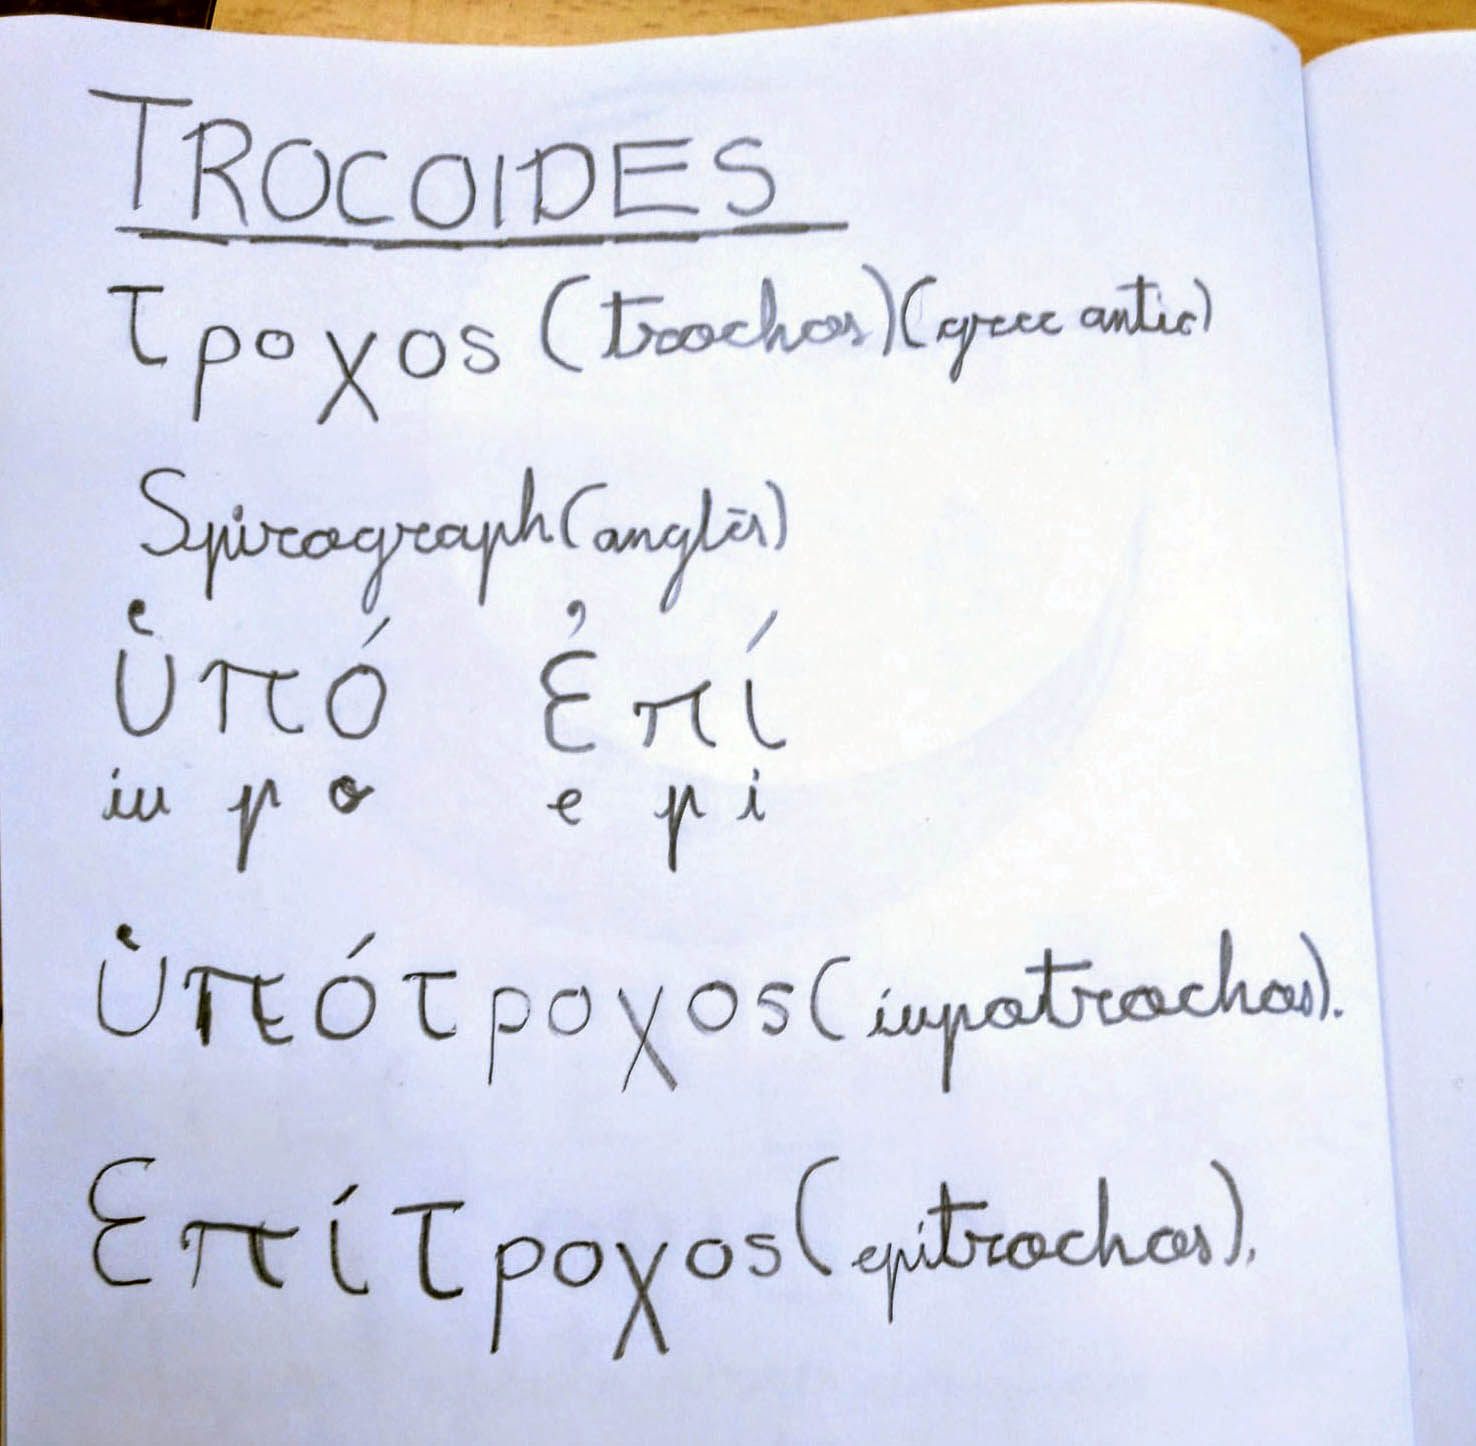 TROCOIDES
τροχοs (trochos) (grec antic)
Spirograph (anglès)
ὑπό ἐπί
iu p o e p i
ὑπότροχοs (iupotrochos).
Επίτροχοs (epitrochos).